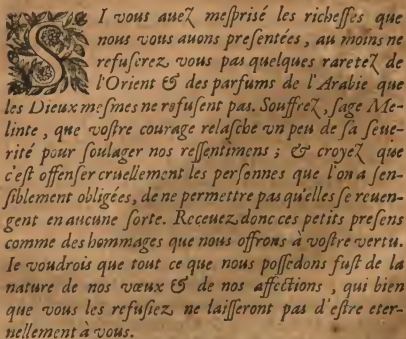 SI vous auez mesprisé les richesses que
nous vous auons presentées, au moins ne
refuserez vous pas quelques raretez de
l'Orient & des parfums de l'Arabie que
les Dieux mesmes ne refusent pas. Souffrez, sage Me-
linte, que vostre courage relasche vn peu de sa seue-
rité pour soulager nos ressentimens ; & croyez que
c'est offenser cruellement les personnes que l'on a sen-
siblement obligées, de ne permettre pas qu'elles se reuen-
gent en aucune sorte. Receuez donc ces petits presens
comme des hommages que nous offrons à vostre vertu.
Ie voudrois que tout ce que nous possedons fust de la
nature de nos vœux & de nos affections, qui bien
que vous les refusiez ne laisseront pas d'estre eter-
nellement à vous.